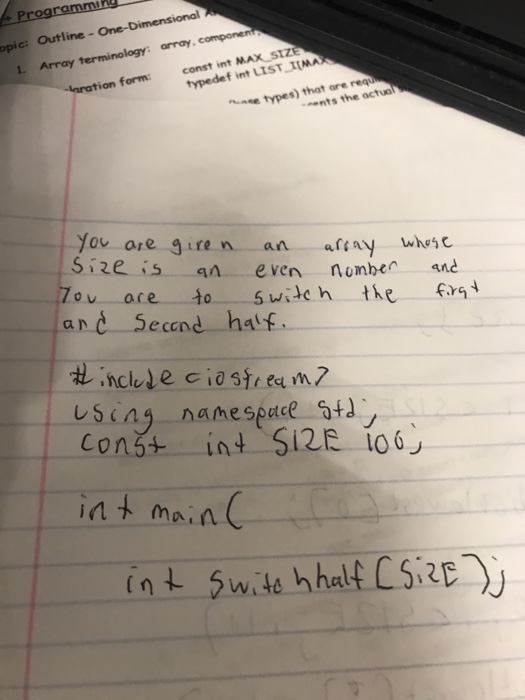 Programming
Outline - One-Dimensional
1. Array terminology: array, component,
const int MAX_SIZE
form:
typedef int LIST_I[MAX
types) that are
the actual
You are given an array whose
Size is an even number and
You are to switch the first
and Second half.
#include <iostream>
using namespace std;
const int SIZE 100;
int main(
int switchhalf [SiZE];